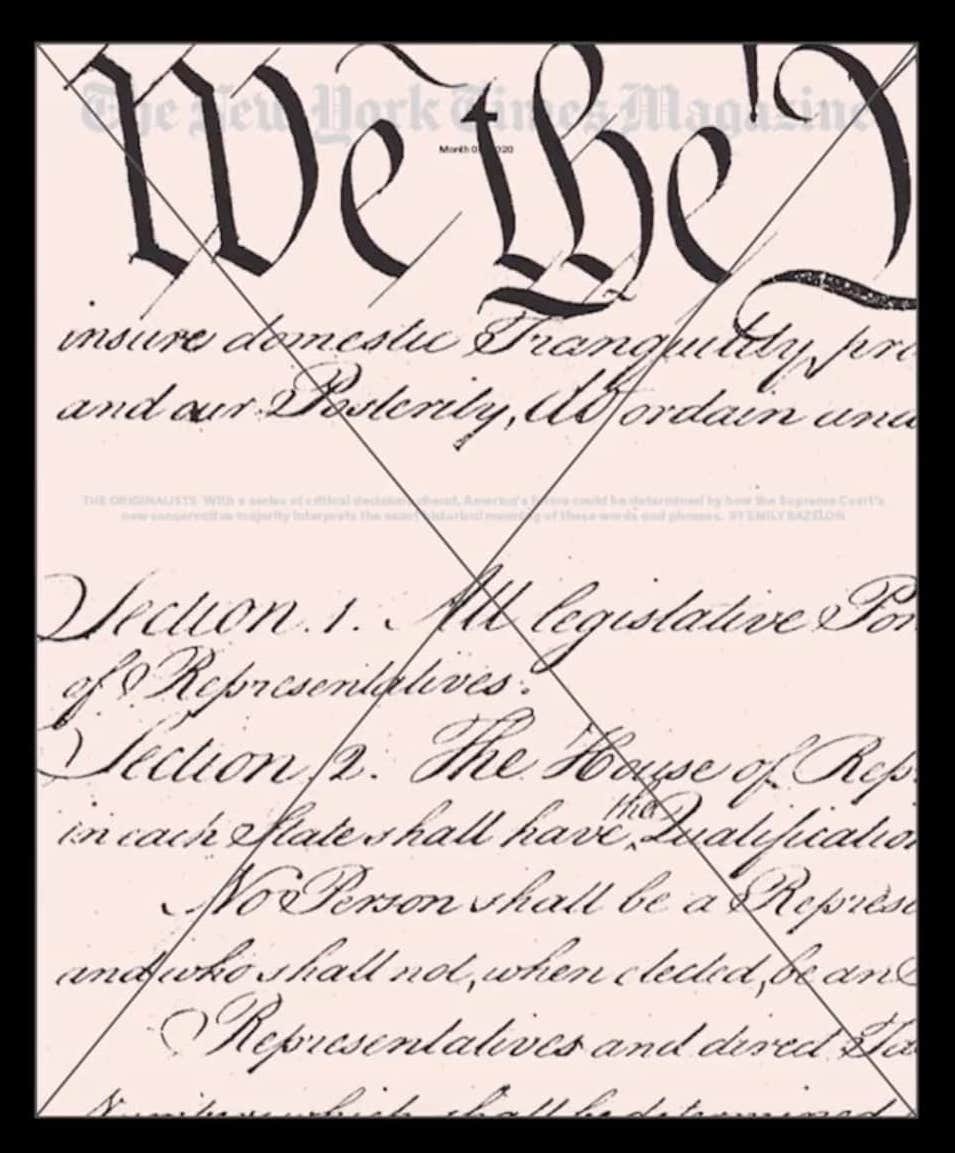 The New York Times Magazine
We the
insure domestic Tranquility, pro
and our Posterity, do ordain and
THE ORIGINALISTS With a series of critical decisions ahead, America's future could be determined by how the Supreme Court's
new conservative majority interprets the exact historical meaning of these words and phrases. BY EMILY BAZELON
Section. 1. All legislative Pow
of Representatives.
Section. 2. The House of Rep
the
in each State shall have Qualification
No Person shall be a Represe
and who shall not, when elected, be an
Representatives and direct Ta
Numbers, which shall be determined